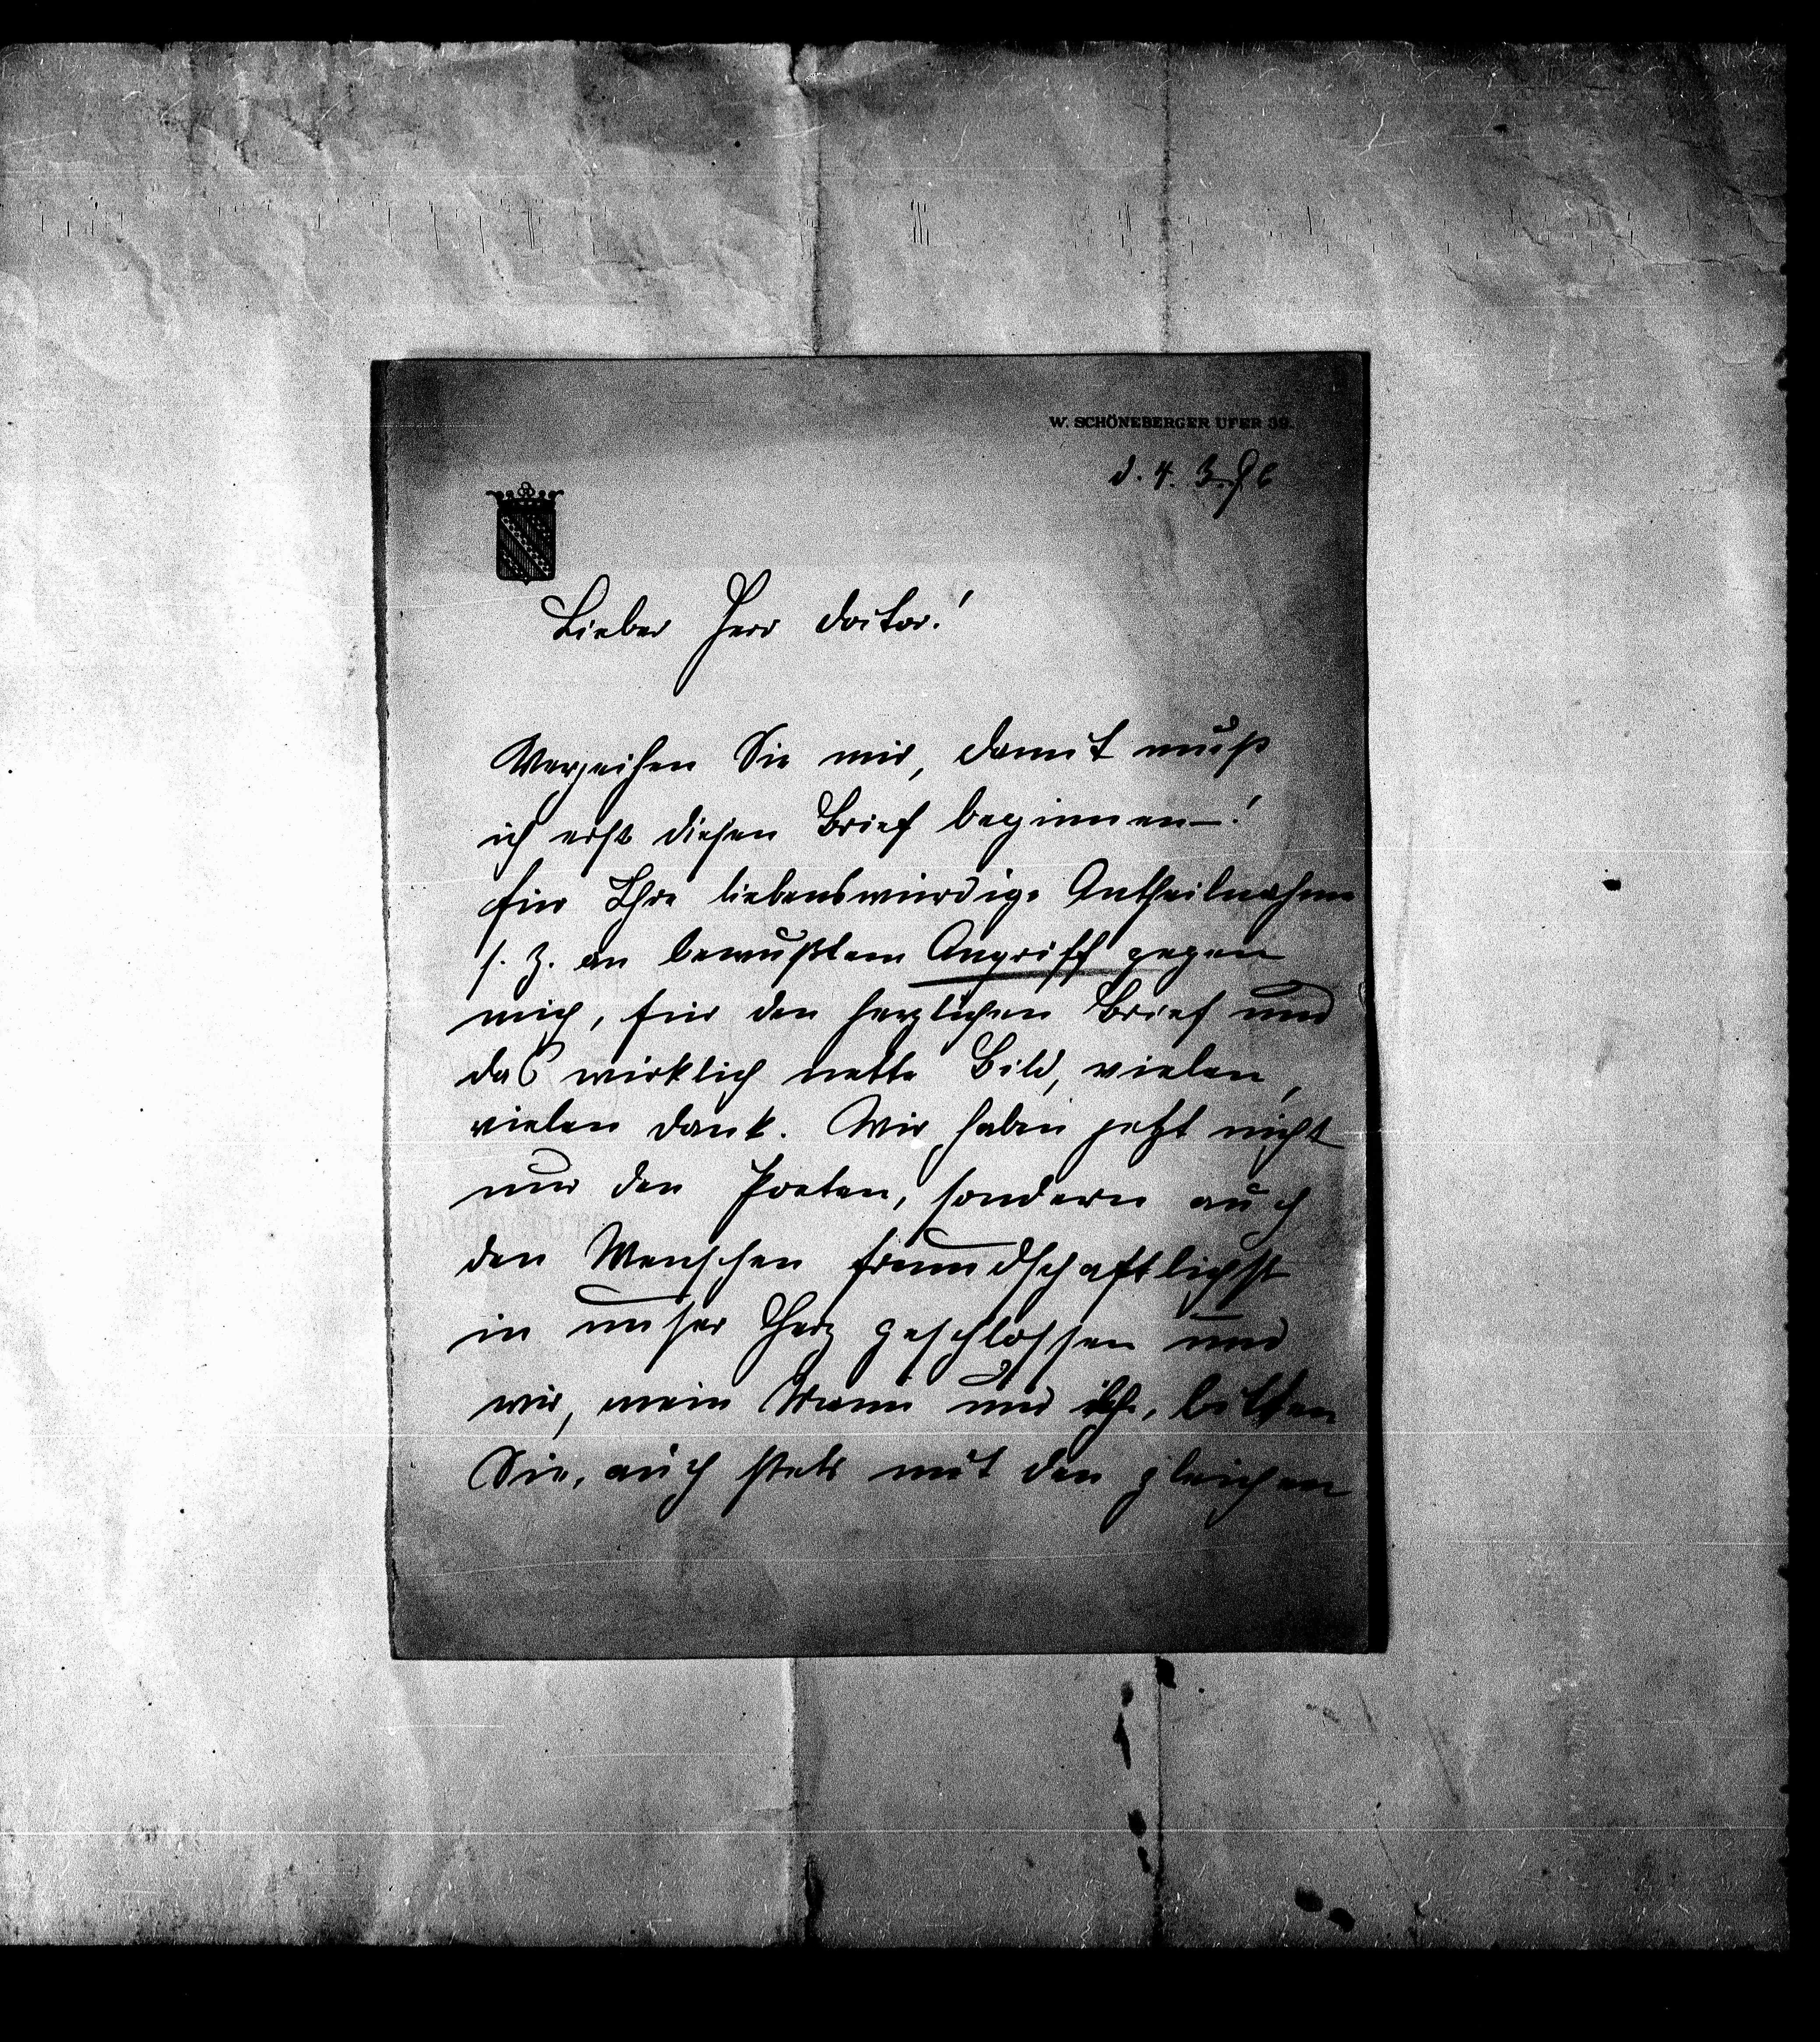 W. SCHÖNEBERGER UFER 39.
d. 4. 3. 96
Lieber Herr Doctor!
Verzeihen Sie mir, damit muß
ich erst diesen Brief beginnen—!
für Ihre liebenswürdige Antheilnahme
s. Z. an bewußtem Angriff gegen
mich, für den herzlichen Brief und
das wirklich nette Bild, vielen,
vielen Dank. Wir haben jetzt nicht
nur den Poeten, sondern auch
den Menschen freundschaftlichst
in unser Herz geschlossen und
wir, mein Mann und ich, bitten
Sie, auch stets mit den gleichen